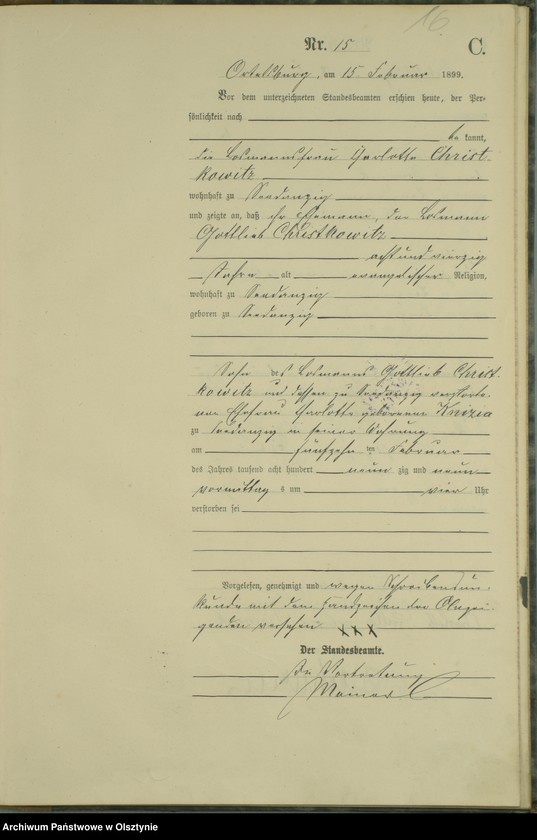 16
Nr. 15
C.
Ortelsburg, am 15 Februar 1899.
Vor dem unterzeichneten Standesbeamten erschien heute, der Per-
sönlichkeit nach
be kannt,
die Losmannsfrau Charlotte Christ-
kowitz
wohnhaft zu Seedanzig
und zeigte an, daß ihr Ehemann, der Losmann
Gottlieb Christkowitz
acht und vierzig
Jahre alt evangelischer Religion,
wohnhaft zu Seedanzig
geboren zu Seedanzig
Sohn des Losmanns Gottlieb Christ-
kowitz und dessen zu Seedanzig verstorbe-
nen Ehefrau Charlotte geborenen
zu Seedanzig in seiner Wohnung
am fünfzehn ten Februar
des Jahres tausend acht hundert neun zig und neun
vormittag s um vier Uhr
verstorben sei
Vorgelesen, genehmigt und wegen Schreibensun-
kunde mit dem Handzeichen der Anzei-
genden versehen XXX
Der Standesbeamte.
In Vertretung
Archiwum Państwowe w Olsztynie